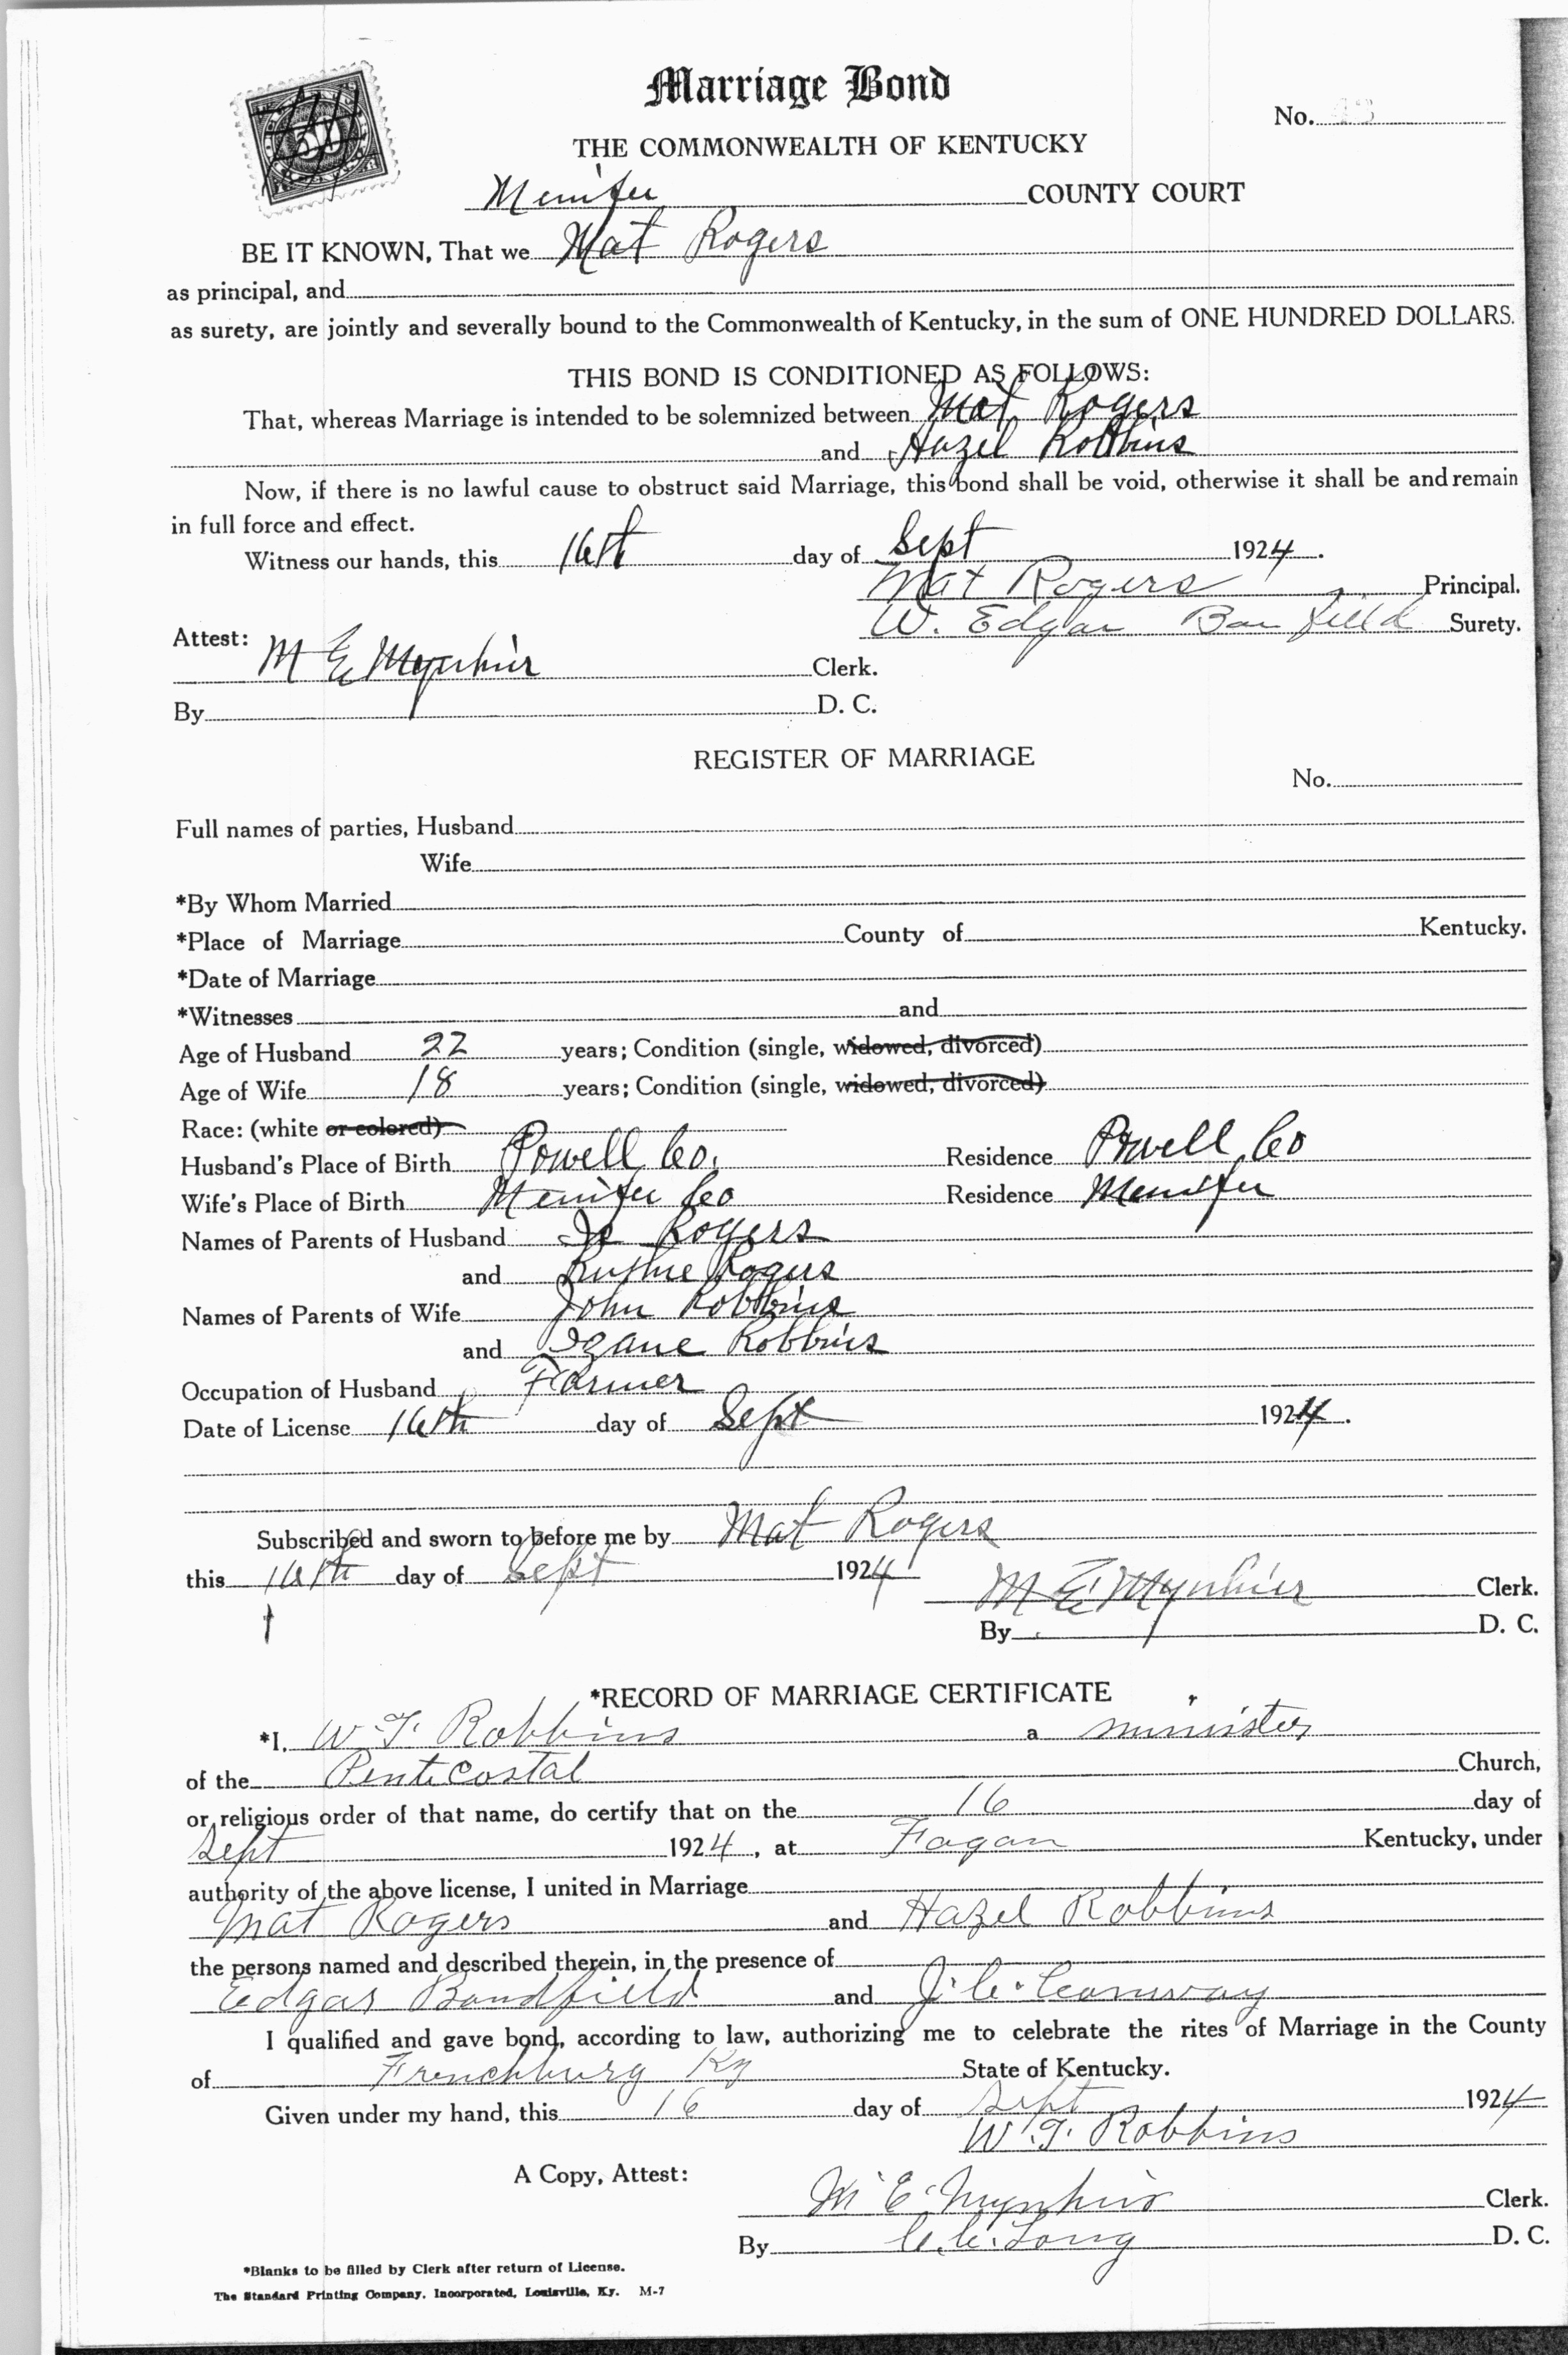 Marriage Bond
No.
THE COMMONWEALTH OF KENTUCKY
Menifee COUNTY COURT
BE IT KNOWN, That we Mat Rogers
as principal, and
as surety, are jointly and severally bound to the Commonwealth of Kentucky, in the sum of ONE HUNDRED DOLLARS.
THIS BOND IS CONDITIONED AS FOLLOWS:
That, whereas Marriage is intended to be solemnized between Mat Rogers
and Hazel Robbins
Now, if there is no lawful cause to obstruct said Marriage, this bond shall be void, otherwise it shall be and remain
in full force and effect.
Witness our hands, this 16th day of Sept 1924.
Mat Rogers Principal.
W. Edgar Banfield Surety.
Attest:
M E Mynhier Clerk.
By D. C.
REGISTER OF MARRIAGE
No.
Full names of parties, Husband
Wife
*By Whom Married
*Place of Marriage County of Kentucky.
*Date of Marriage
*Witnesses and
Age of Husband 22 years; Condition (single, widowed, divorced)
Age of Wife 18 years; Condition (single, widowed, divorced)
Race: (white or colored)
Husband's Place of Birth Powell Co. Residence Powell Co
Wife's Place of Birth Menifee Co Residence Menifee
Names of Parents of Husband Rogers
and Ruthie Rogers
Names of Parents of Wife John Robbins
and Robbins
Occupation of Husband Farmer
Date of License 16th day of Sept 1924.
Subscribed and sworn to before me by Mat Rogers
this 16th day of Sept 1924
M E Mynhier Clerk.
By D. C.
*RECORD OF MARRIAGE CERTIFICATE
*I, W. T. Robbins a minister
of the Pentecostal Church,
or religious order of that name, do certify that on the 16 day of
Sept 1924, at Fagan Kentucky, under
authority of the above license, I united in Marriage
Mat Rogers and Hazel Robbins
the persons named and described therein, in the presence of
Edgar Bandfield and J. C. Conway
I qualified and gave bond, according to law, authorizing me to celebrate the rites of Marriage in the County
of Frenchburg Ky State of Kentucky.
Given under my hand, this 16 day of Sept 1924
W. T. Robbins
A Copy, Attest:
M E Mynhier Clerk.
By C. C. Long D. C.
*Blanks to be filled by Clerk after return of License.
The Standard Printing Company, Incorporated, Louisville, Ky. M-7